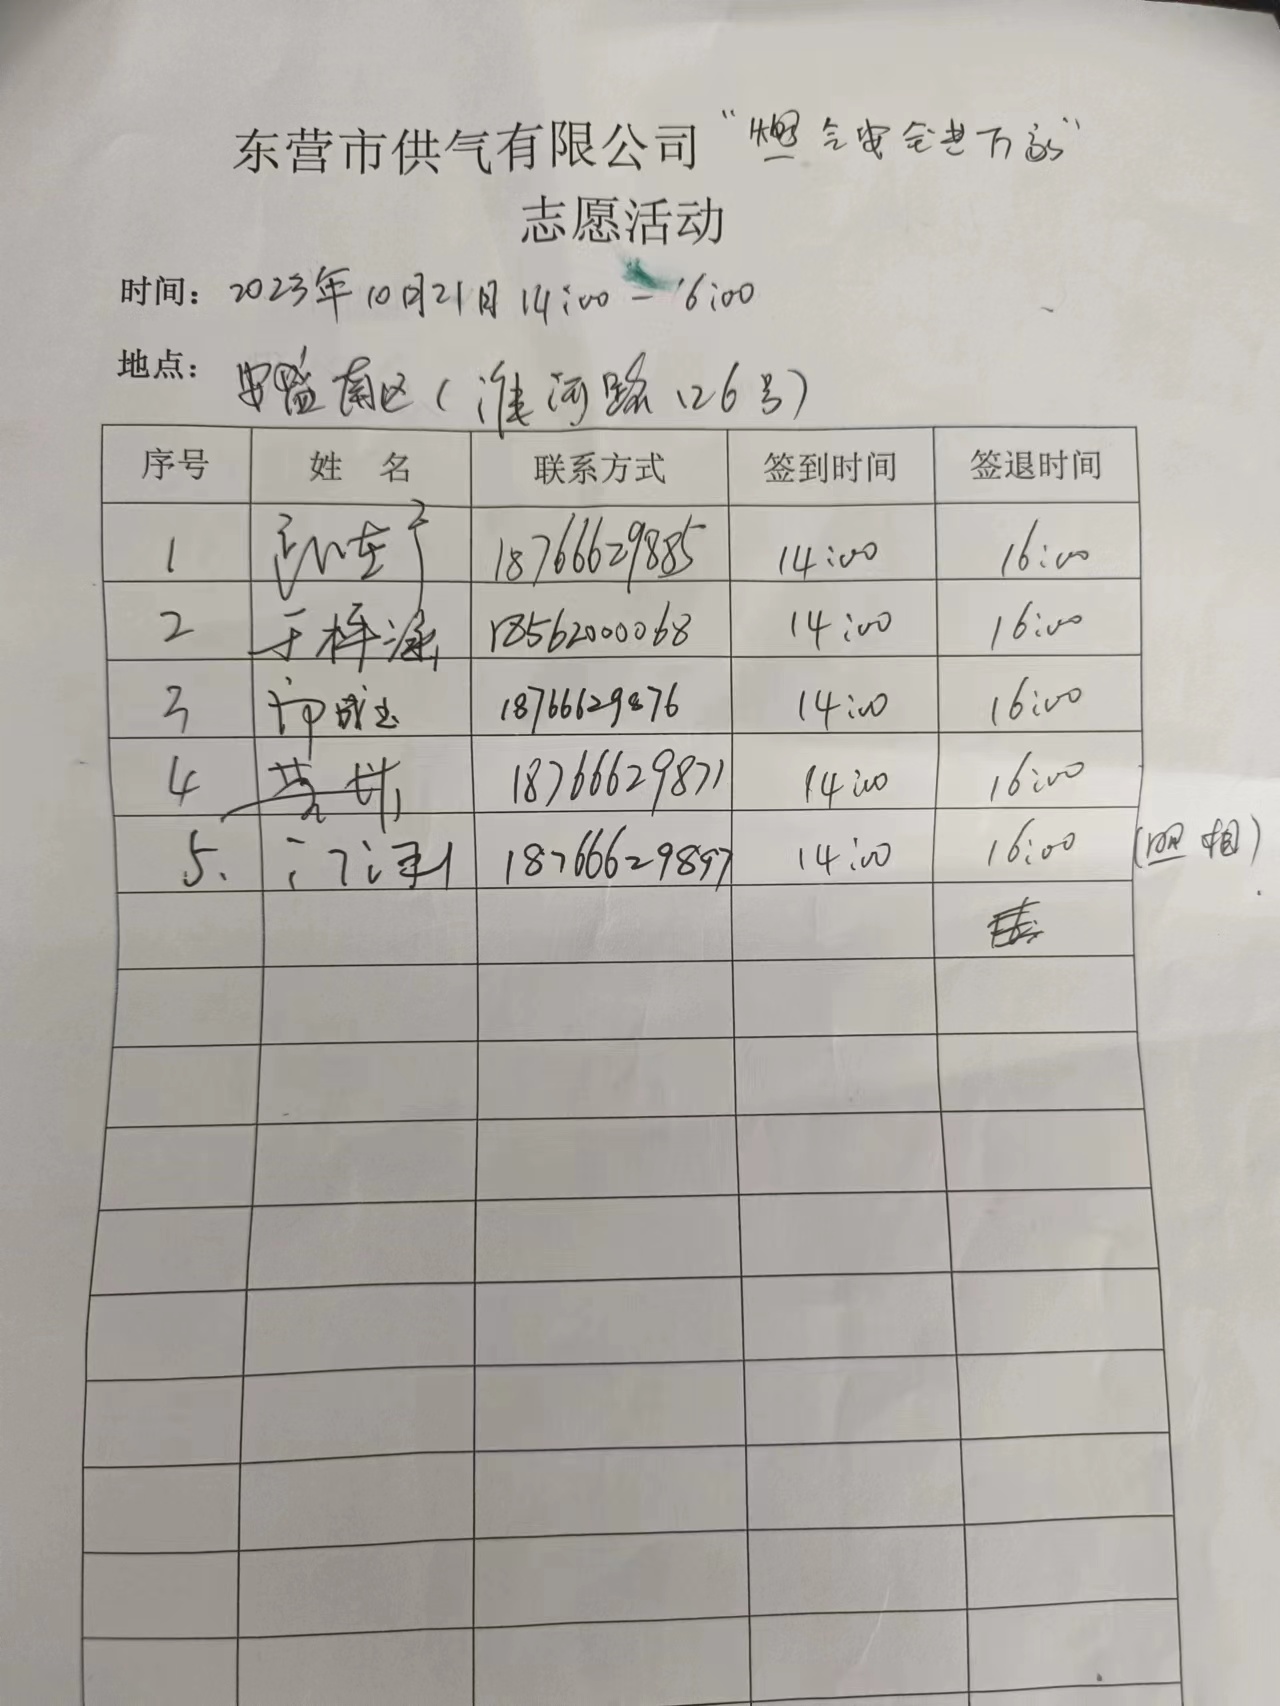 东营市供气有限公司“燃气安全进万家”
志愿活动
时间：2023年10月21日14:00-16:00
地点：安盛南区(淮河路126号)
序号 姓名 联系方式 签到时间 签退时间
1 18766629885 14:00 16:00
2 于梓涵 18562000068 14:00 16:00
3 18766629876 14:00 16:00
4 18766629871 14:00 16:00
5. 18766629897 14:00 16:00 (照相)